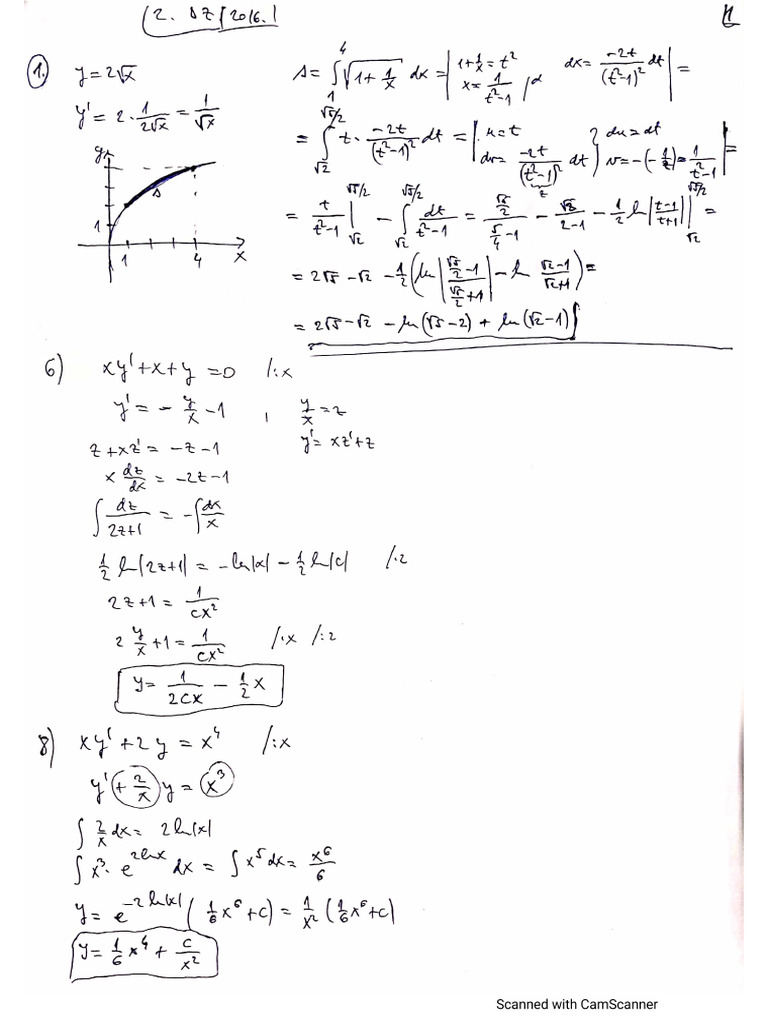 (2. DZ/2016.)
1. y = 2√x
y' = 2·1/(2√x) = 1/√x
y
1
1 4 x
s
s = ∫₁⁴ √(1+1/x) dx = | 1+1/x = t² x = 1/(t²-1) /d dx = -2t/(t²-1)² dt | =
= ∫_{√2}^{√5/2} t · -2t/(t²-1)² dt = | u = t dv = -2t/(t²-1)² dt } du = dt v = -(-1/z) = 1/(t²-1) | =
z
= t/(t²-1) |_{√2}^{√5/2} - ∫_{√2}^{√5/2} dt/(t²-1) = (√5/2)/(5/4-1) - √2/(2-1) - 1/2 ln|(t-1)/(t+1)| |_{√2}^{√5/2} =
= 2√5 - √2 - 1/2 (ln |(√5/2-1)/(√5/2+1)| - ln (√2-1)/(√2+1)) =
= 2√5 - √2 - ln(√5-2) + ln(√2-1)
6) xy' + x + y = 0 /:x
y' = - y/x - 1 , y/x = z
z + xz' = -z - 1 y' = xz' + z
x dz/dx = -2z - 1
∫ dz/(2z+1) = -∫ dx/x
1/2 ln|2z+1| = -ln|x| - 1/2 ln|c| /·2
2z + 1 = 1/(cx²)
2 y/x + 1 = 1/(cx²) /·x /:2
y = 1/(2cx) - 1/2 x
8) xy' + 2y = x⁴ /:x
y' + 2/x y = x³
∫ 2/x dx = 2 ln|x|
∫ x³ · e^{2lnx} dx = ∫ x⁵ dx = x⁶/6
y = e^{-2 ln|x|} (1/6 x⁶ + c) = 1/x² (1/6 x⁶ + c)
y = 1/6 x⁴ + c/x²
Scanned with CamScanner